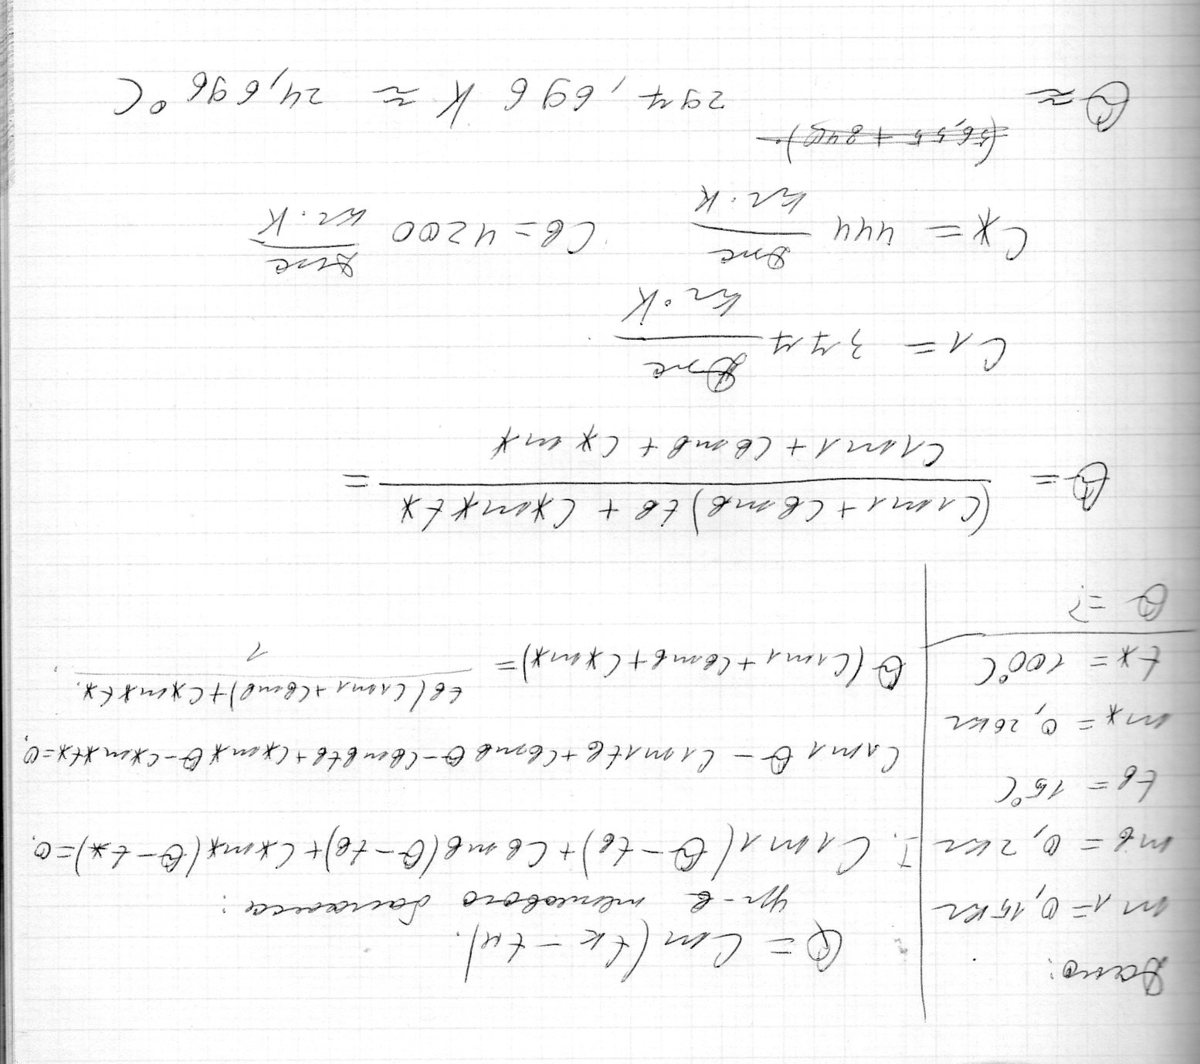 Дано:
m1 = 0,15 кг
mв = 0,2 кг
tв = 15°C
mж = 0,26 кг
tж = 100°C
θ = ?
Q = Cm(tк - tн).
ур-е теплового баланса:
1. C1m1(θ - tв) + Cвmв(θ - tв) + Cжmж(θ - tж) = 0.
C1m1θ - C1m1tв + Cвmвθ - Cвmвtв + Cжmжθ - Cжmжtж = 0.
θ(C1m1 + Cвmв + Cжmж) = tв(C1m1 + Cвmв) + Cжmжtж. / 1
θ = (C1m1 + Cвmв)tв + Cжmжtж / C1m1 + Cвmв + Cжmж =
C1 = 377 Дж / кг·K.
Cж = 444 Дж / кг·K. Cв = 4200 Дж / кг·K
(56,55 + 840)·
θ ≈ 297,696 K ≈ 24,696°C